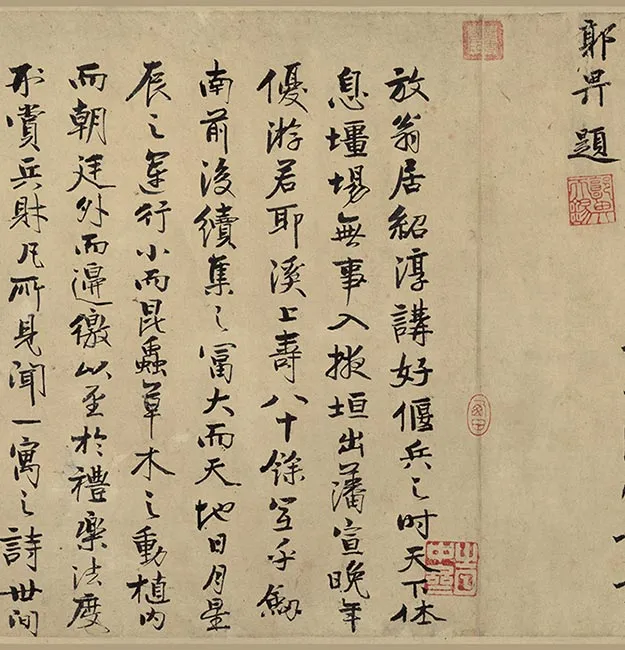 郭畀題
放翁居紹淳講好偃兵之時天下休
息壃場無事入掖垣出藩宣晚年
優游若耶溪上壽八十餘宜乎劒
南前後續集之富大而天地日月星
辰之運行小而昆蟲草木之動植內
而朝廷外而邊徼以至於禮樂法度
刑賞兵財凡所見聞一寓之詩世間